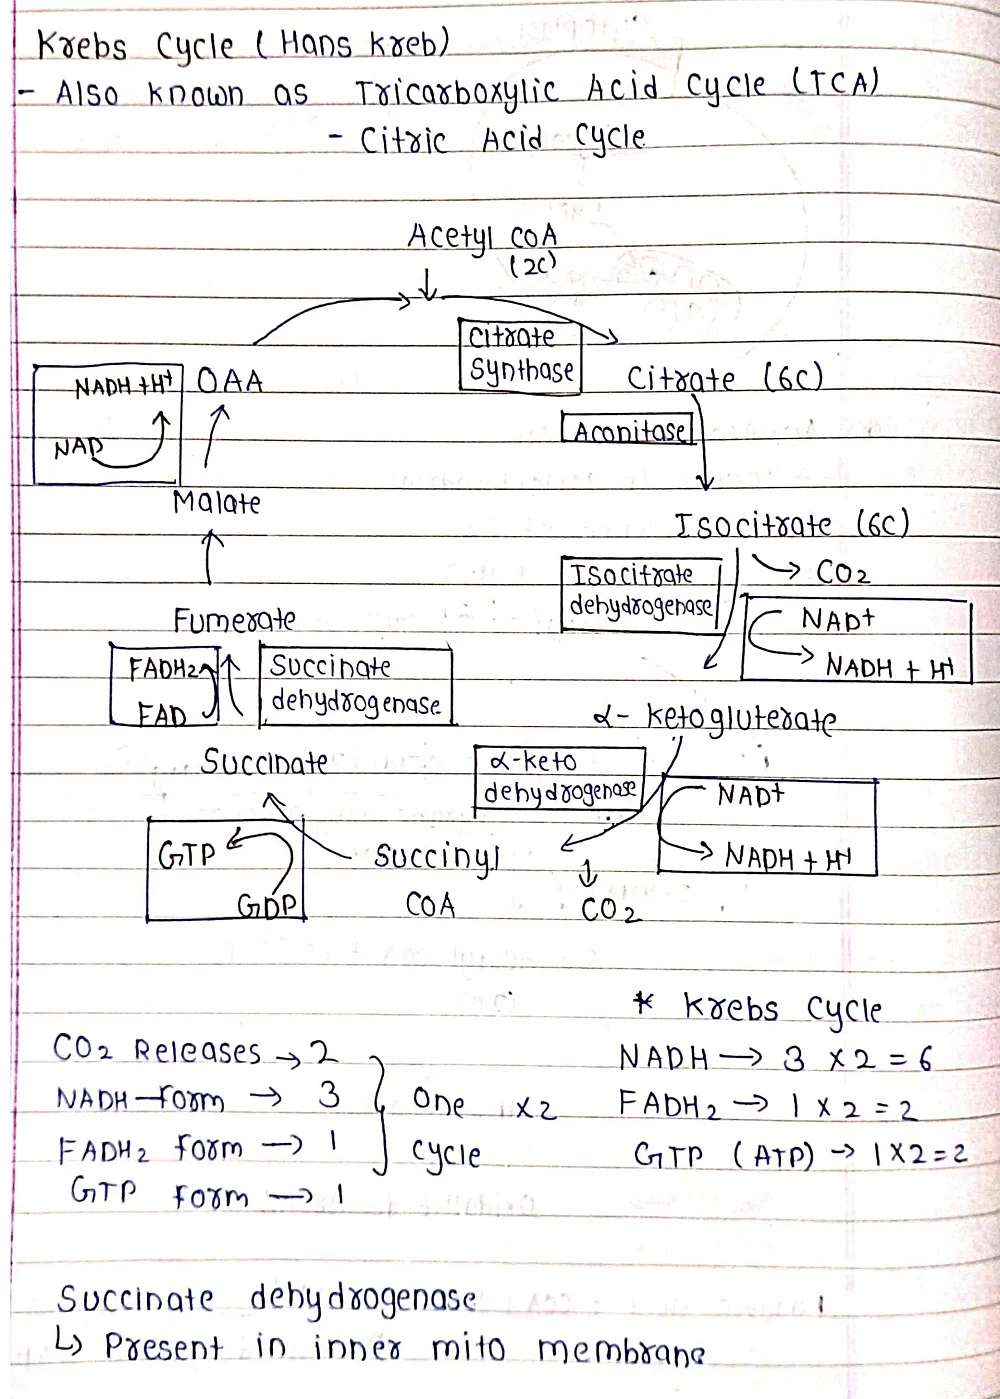 Krebs Cycle (Hans Kreb)
- Also known as Tricarboxylic Acid Cycle (TCA)
- Citric Acid Cycle
Acetyl COA
(2C)
Citrate
Synthase
NADH + H+ OAA
Citrate (6C)
NAD
Aconitase
Malate
Isocitrate (6C)
Isocitrate
dehydrogenase
CO2
NAD+
NADH + H+
Fumerate
FADH2
FAD
Succinate
dehydrogenase
α- Ketogluterate
Succinate
α-keto
dehydrogenase
NAD+
NADH + H+
GTP
GDP
Succinyl
COA
CO2
* Krebs Cycle
CO2 Releases → 2
NADH form → 3
FADH2 form → 1
GTP form → 1
One x2
cycle
NADH → 3 x 2 = 6
FADH2 → 1 x 2 = 2
GTP (ATP) → 1 x 2 = 2
Succinate dehydrogenase
↳ Present in inner mito membrane